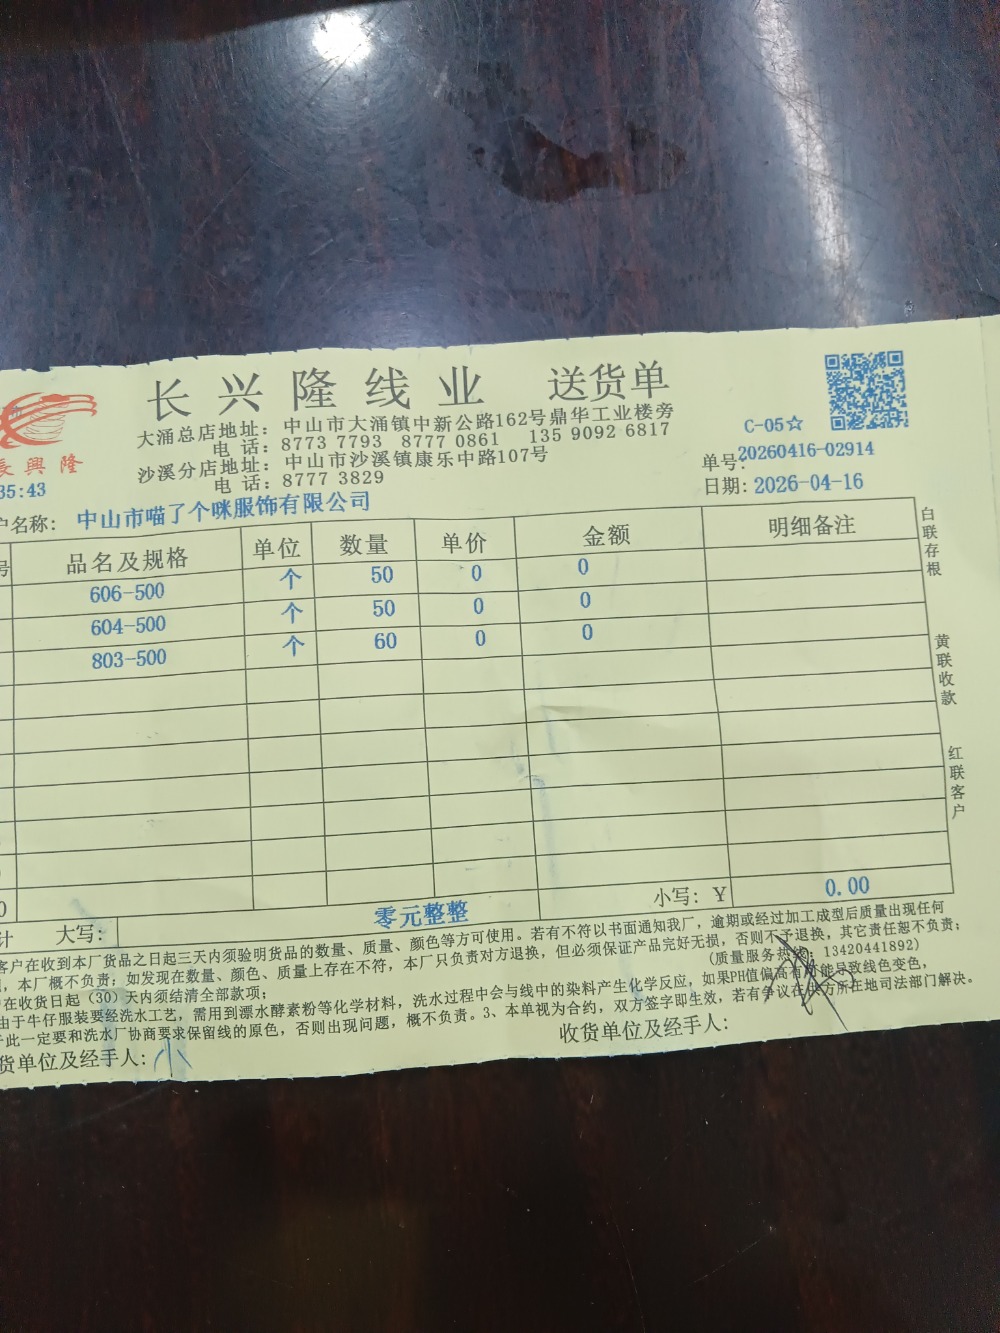 长兴隆线业 送货单
大涌总店地址：中山市大涌镇中新公路162号鼎华工业楼旁
电 话：8773 7793 8777 0861 135 9092 6817
沙溪分店地址：中山市沙溪镇康乐中路107号
电 话：8777 3829
興隆
35:43
C-05☆
单号:20260416-02914
日期: 2026-04-16
户名称: 中山市喵了个咪服饰有限公司
号 品名及规格 单位 数量 单价 金额 明细备注
606-500 个 50 0 0
604-500 个 50 0 0
803-500 个 60 0 0
0
计 大写: 零元整整 小写: ￥ 0.00
客户在收到本厂货品之日起三天内须验明货品的数量、质量、颜色等方可使用。若有不符以书面通知我厂，逾期或经过加工成型后质量出现任何
，本厂概不负责；如发现在数量、颜色、质量上存在不符，本厂只负责对方退换，但必须保证产品完好无损，否则不予退换，其它责任恕不负责；
在收货日起（30）天内须结清全部款项； (质量服务热线：13420441892)
由于牛仔服装要经洗水工艺，需用到漂水酵素粉等化学材料，洗水过程中会与线中的染料产生化学反应，如果PH值偏高有可能导致线色变色，
此一定要和洗水厂协商要求保留线的原色，否则出现问题，概不负责。3、本单视为合约，双方签字即生效，若有争议在供方所在地司法部门解决。
货单位及经手人: 收货单位及经手人:
白联存根
黄联收款
红联客户